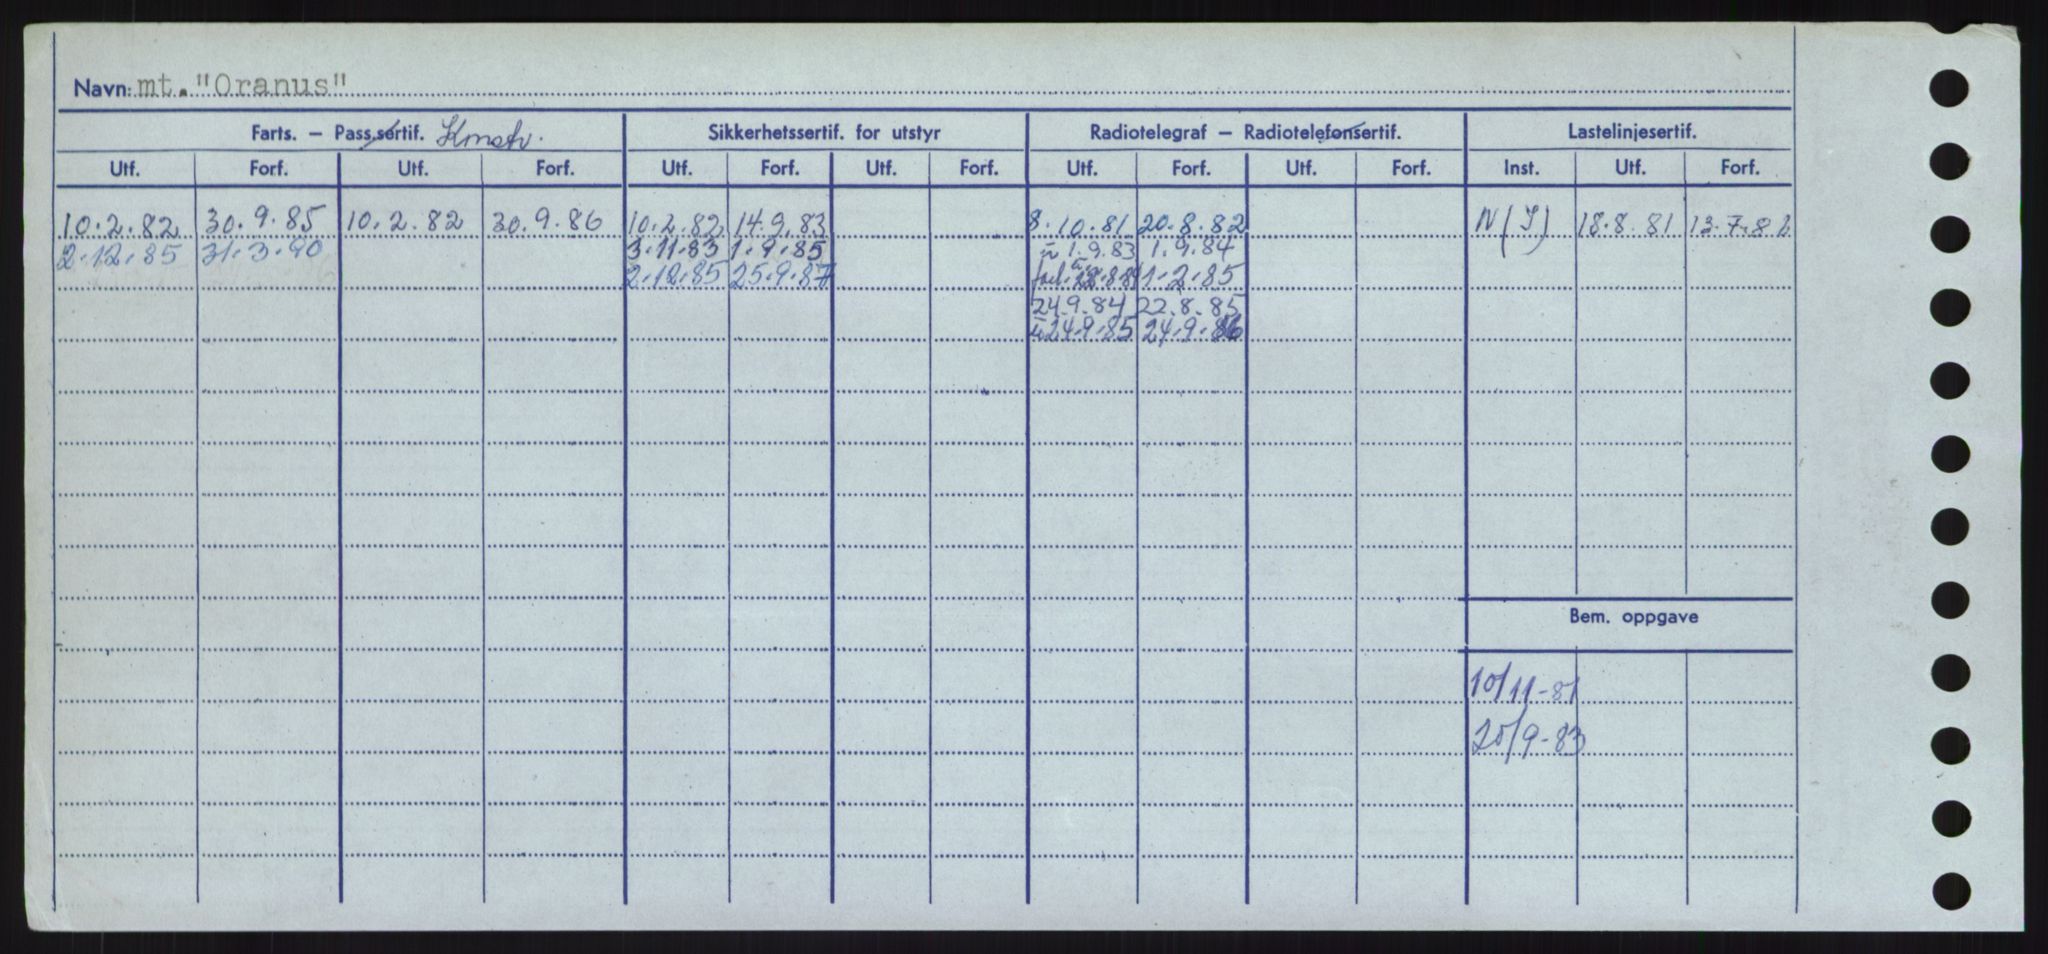 Navn: mt. "Oranus"
Farts. – Pass.sertif. Konstr. Sikkerhetssertif. for utstyr Radiotelegraf – Radiotelefonsertif. Lastelinjesertif.
Utf. Forf. Utf. Forf. Utf. Forf. Utf. Forf. Utf. Forf. Utf. Forf. Inst. Utf. Forf.
10.2.82 30.9.85 10.2.82 30.9.86 10.2.82 14.9.83 8.10.81 20.8.82 N (I) 18.8.81 13.7.86
2.12.85 31.3.90 3.11.83 1.9.85 1.9.83 1.9.84
2.12.85 25.9.87 1.2.85
24.9.84 22.8.85
24.9.85 24.9.86
Bem. oppgave
10/11-81
20/9-83